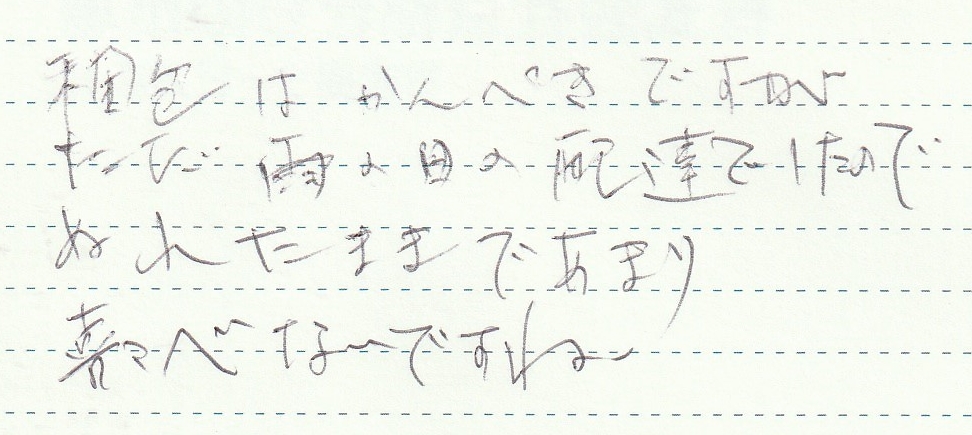 梱包はかんぺきですが
ただ雨の日の配達でしたので
ぬれたままであまり
喜べないですね